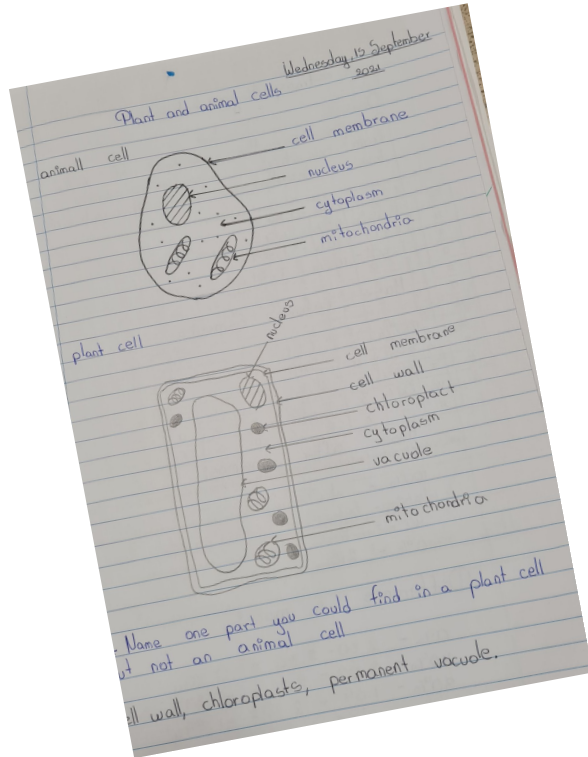 Wednesday, 15 September
2021
Plant and animal cells
animall cell
cell membrane
nucleus
cytoplasm
mitochondria
plant cell
nucleus
cell membrane
cell wall
chloroplact
cytoplasm
vacuole
mitochondria
Name one part you could find in a plant cell
ut not an animal cell
ell wall, chloroplasts, permanent vacuole.